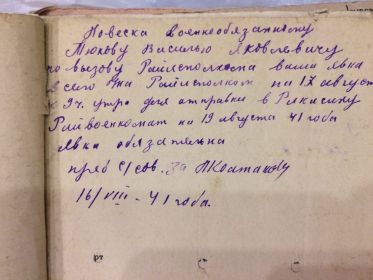 Повеска военнообязанному
Тюкову Василью Яковлевичу
по вызову Райисполкома ваша явка
в село Райисполком на 18 август
к 9 ч. утро для отправки в
Райвоенкомат на 19 августа 41 года
явка обязательна
пред с/сов. за
16/VIII - 41 года.